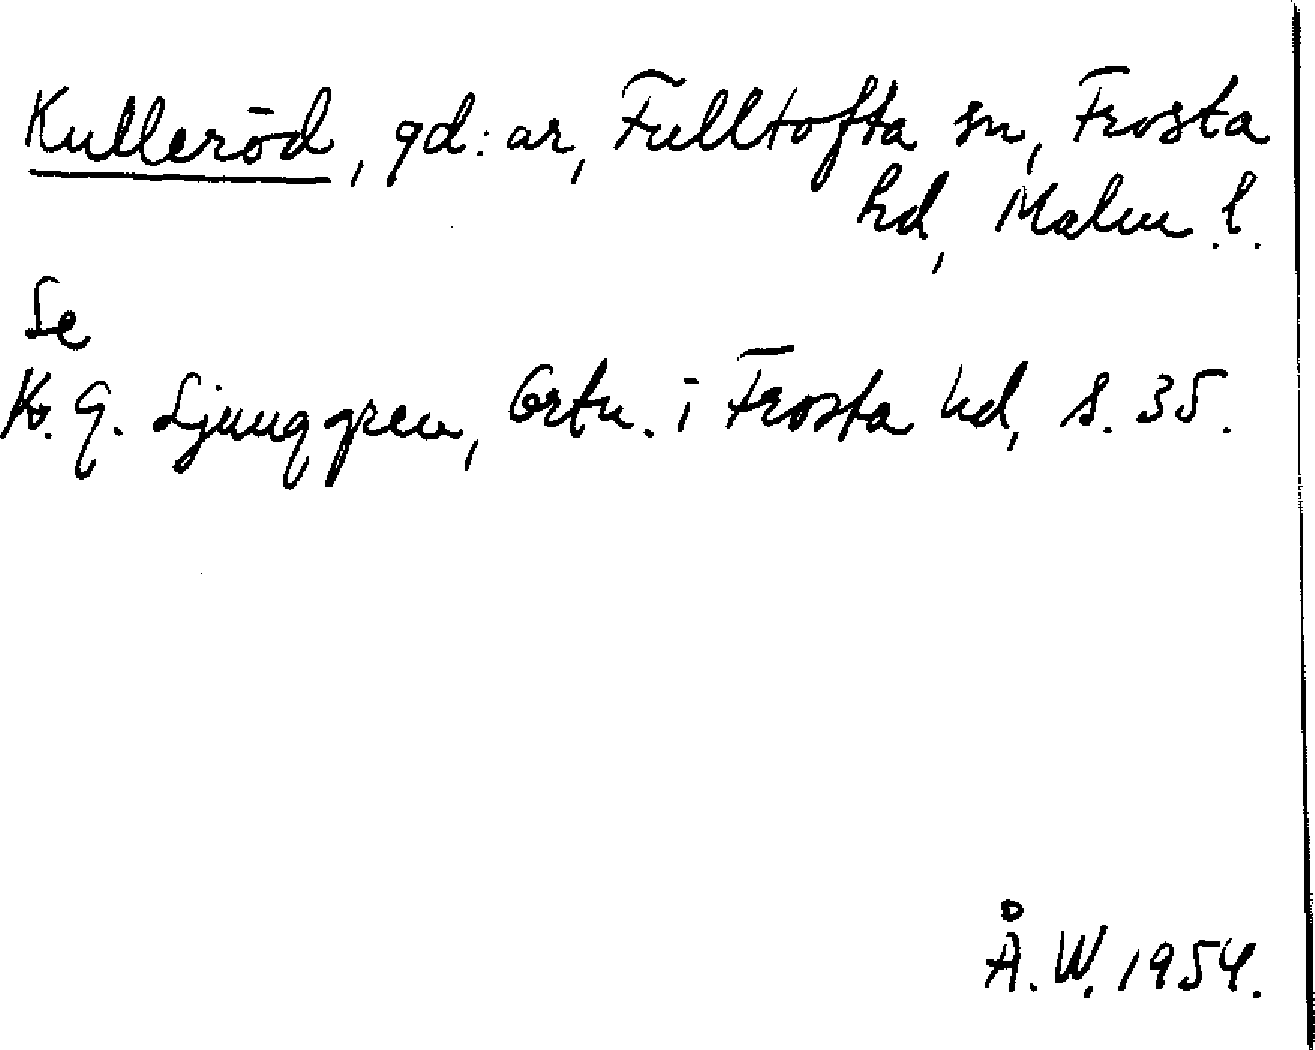 Kulleröd, gd:ar, Fulltofta sn, Frosta
hd, Malm. l.
Se
K. G. Ljunggren, Ortn. i Frosta hd, s. 35.
Å. W. 1954.